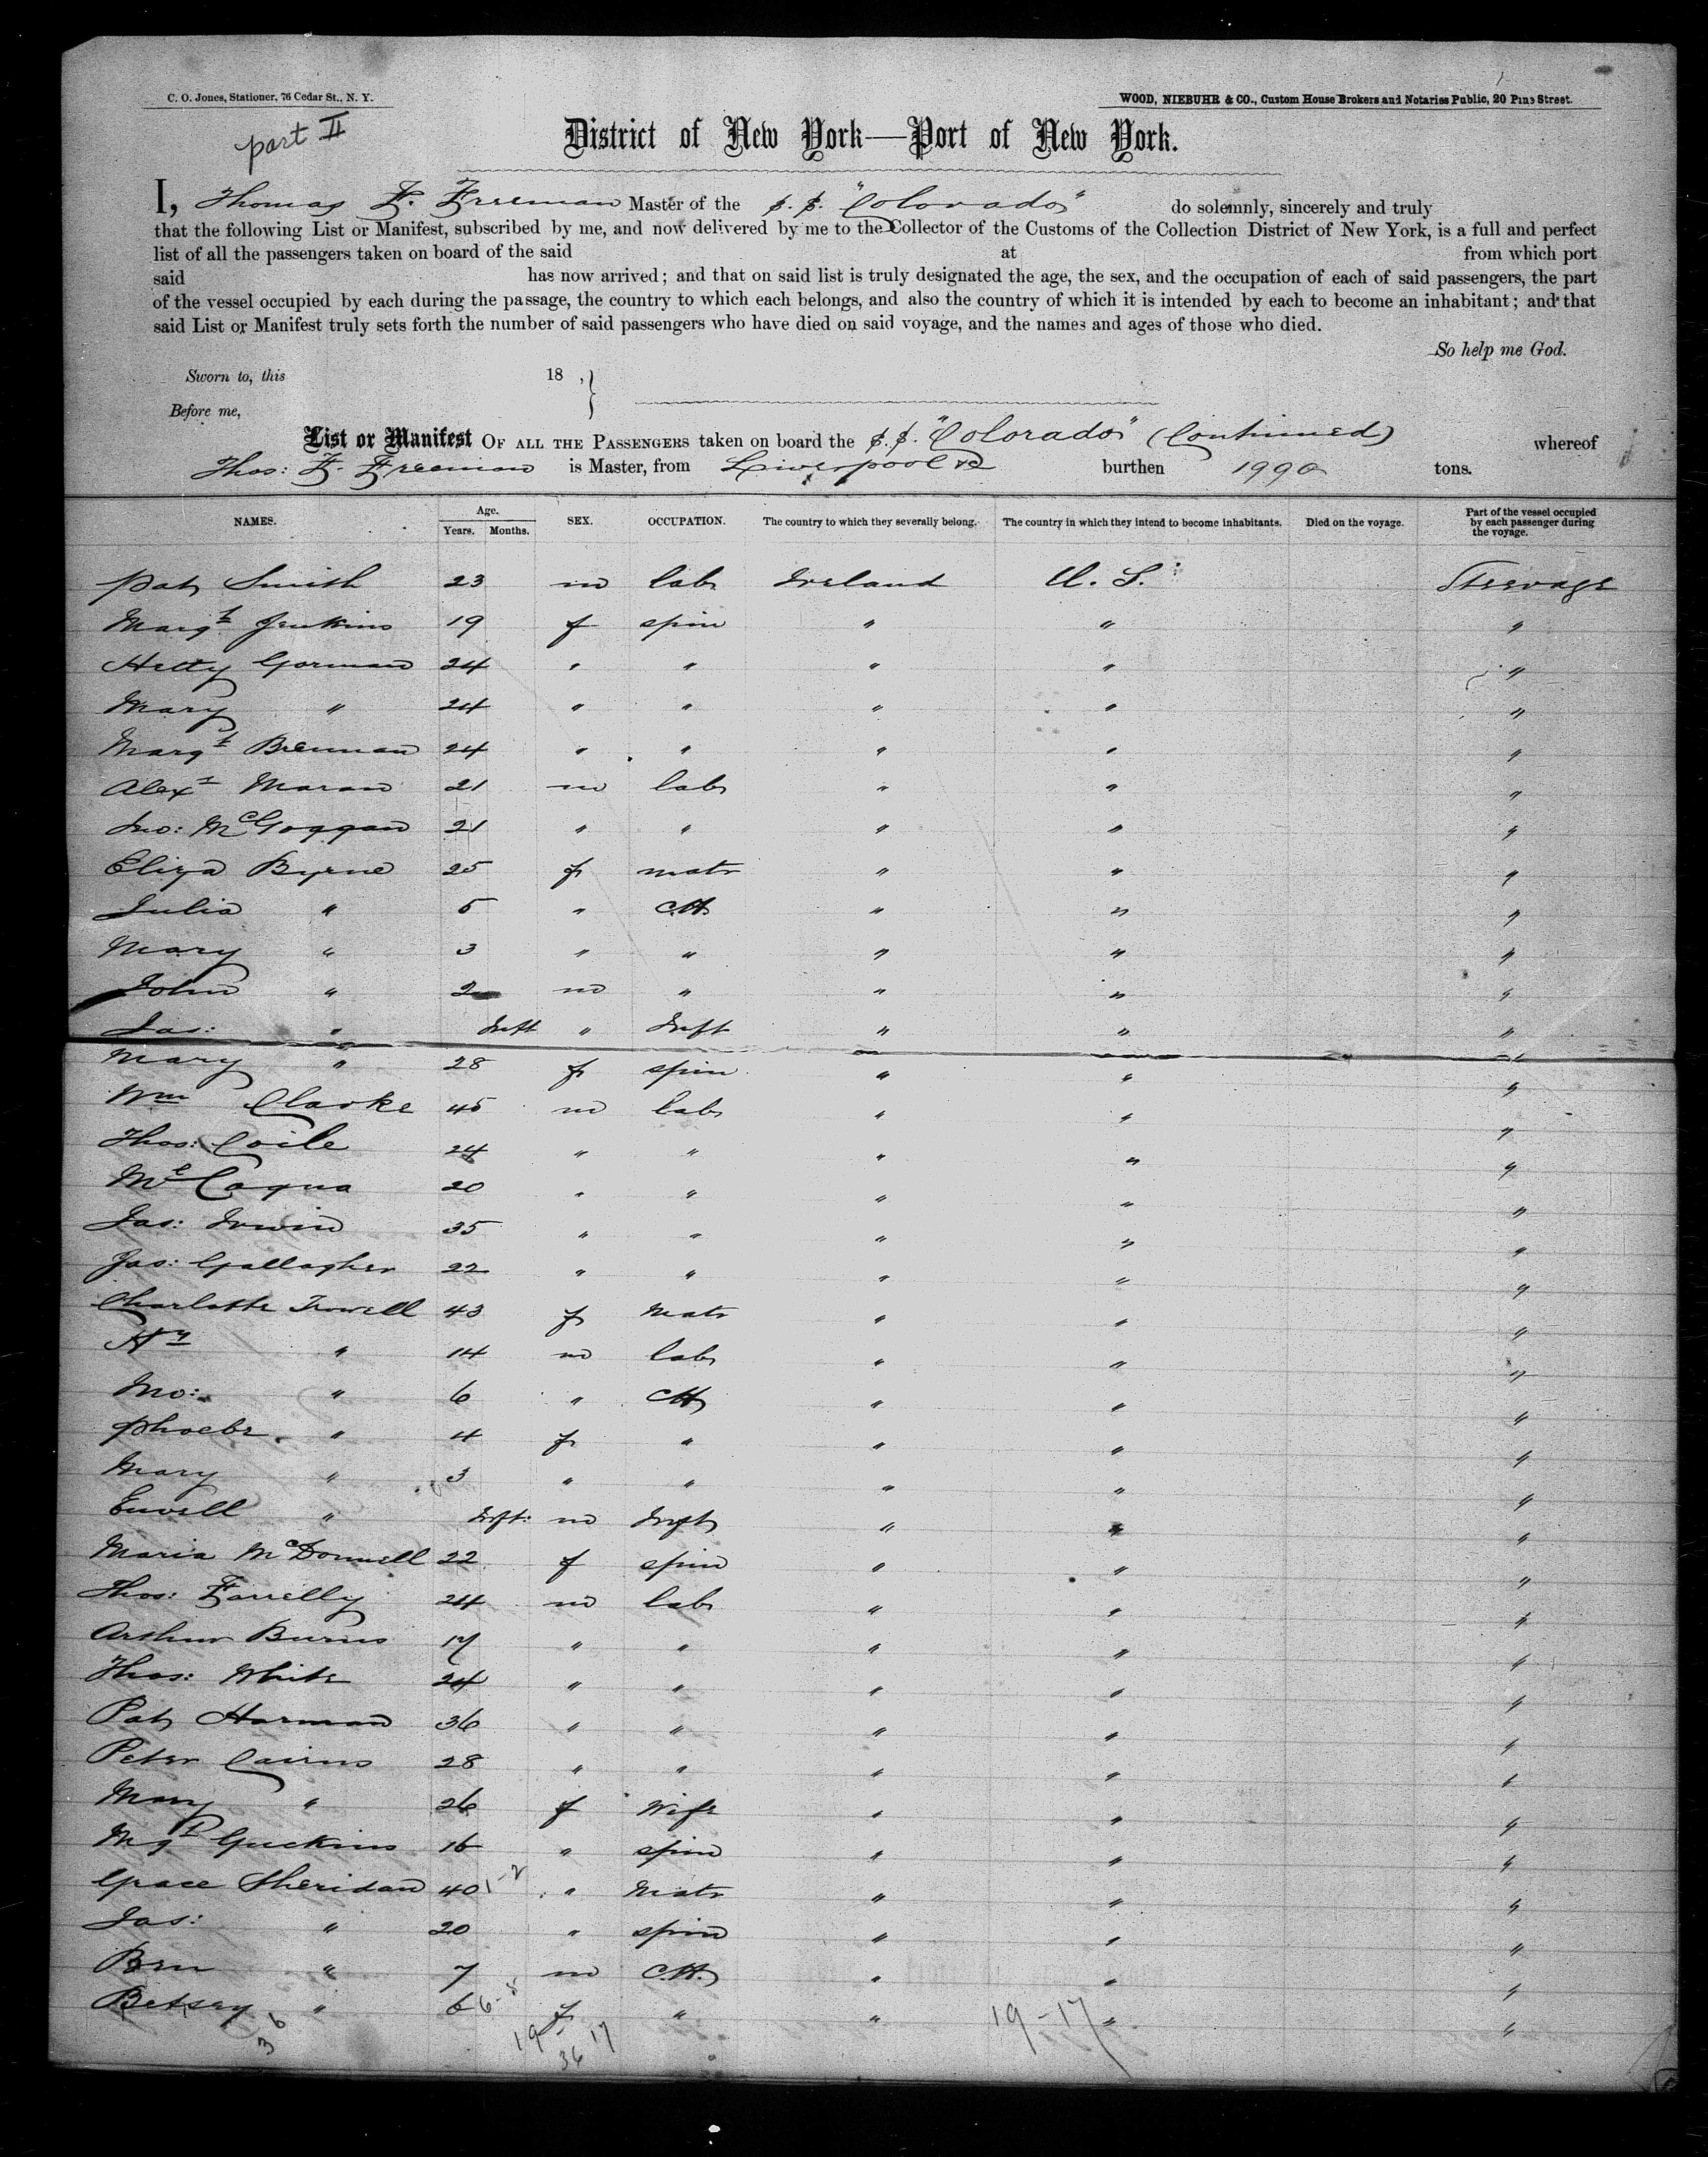 C. O. Jones, Stationer, 76 Cedar St., N. Y.
WOOD, NIEBUHR & CO., Custom House Brokers and Notaries Public, 20 Pine Street.
part II
District of New York—Port of New York.
I, Thomas F. Freeman Master of the S.S. "Colorado" do solemnly, sincerely and truly
that the following List or Manifest, subscribed by me, and now delivered by me to the Collector of the Customs of the Collection District of New York, is a full and perfect
list of all the passengers taken on board of the said at from which port
said has now arrived; and that on said list is truly designated the age, the sex, and the occupation of each of said passengers, the part
of the vessel occupied by each during the passage, the country to which each belongs, and also the country of which it is intended by each to become an inhabitant; and that
said List or Manifest truly sets forth the number of said passengers who have died on said voyage, and the names and ages of those who died.
So help me God.
Sworn to, this 18 ,}
Before me,
List or Manifest OF ALL THE PASSENGERS taken on board the S.S. "Colorado" (Continued) whereof
Thos: F. Freeman is Master, from Liverpool burthen 1990 tons.
NAMES. Age. Years. Months. SEX. OCCUPATION. The country to which they severally belong. The country in which they intend to become inhabitants. Died on the voyage. Part of the vessel occupied by each passenger during the voyage.
Pat Smith 23 m lab Ireland U. S. Steerage
Margt Jenkins 19 f spin " " "
Hetty Gorman 24 " " " " "
Mary " 24 " " " " "
Margt Brennan 24 " " " " "
Alexr Moran 21 m lab " " "
Jno: McGoggan 21 " " " " "
Eliza Byrne 25 f matr " " "
Julia " 5 " Ch " " "
Mary " 3 " " " " "
John " 2 m " " " "
Jas: " Inft " Inft " " "
Mary " 28 f spin " " "
Wm Clarke 45 m lab " " "
Thos: Coile 24 " " " " "
20 " " " " "
Jas: Irwin 35 " " " " "
Jas: Gallagher 22 " " " " "
Charlotte Trowell 43 f Matr " " "
Hy " 14 m lab " " "
Jno: " 6 " Ch " " "
Phoebe " 4 f " " " "
Mary " 3 " " " " "
" Inft: m Inft " " "
Maria McDonnell 22 f spin " " "
Thos: Farrelly 24 m lab " " "
Arthur Burns 17 " " " " "
Thos: White 24 " " " " "
Pat Harman 36 " " " " "
Peter Cairns 28 " " " " "
Mary " 26 f Wife " " "
Mgt Guckins 16 " spin " " "
Grace Sheridan 40 1-2 " Matr " " "
Jas: " 20 " spin " " "
Ben " 7 m Ch. " " "
Betsey " 6 f " " " "
36
19 - 17
36
19-17